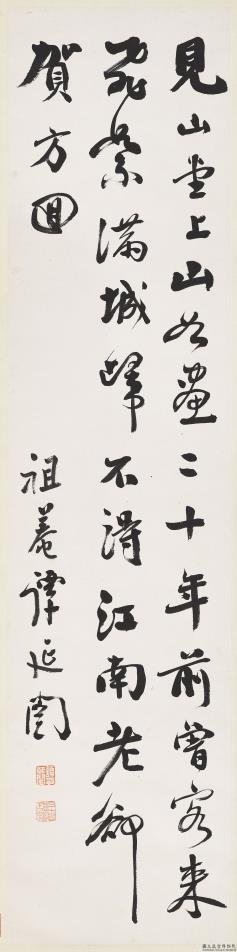 見山堂上山如畫二十年前曾客來
飛絮滿城歸不得江南老卻
賀方回
祖菴譚延闓